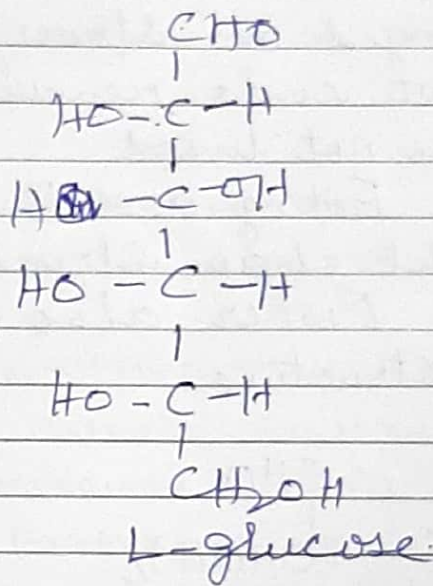 CHO
|
HO-C-H
|
H-C-OH
|
HO-C-H
|
HO-C-H
|
CH2OH
L-glucose